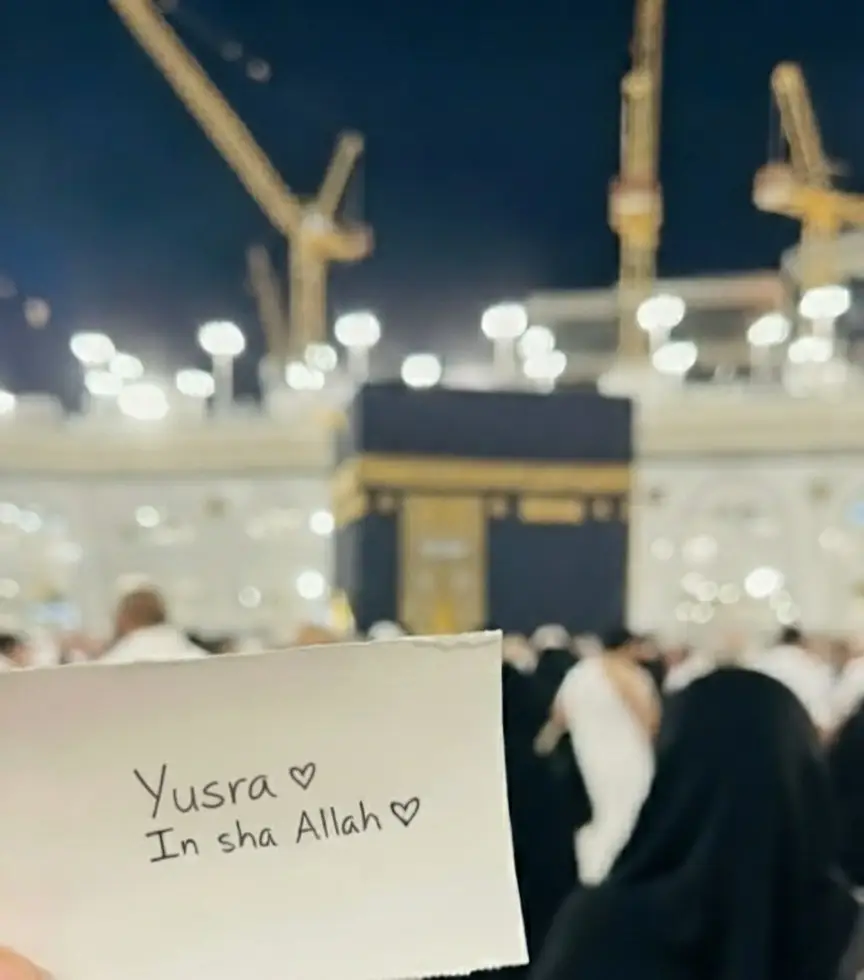 Yusra ♡
In sha Allah ♡